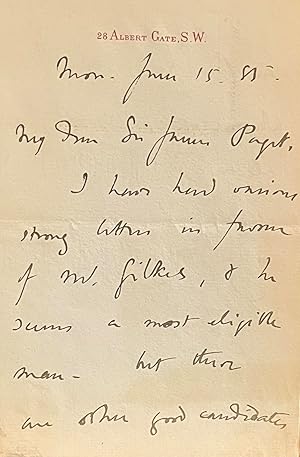 28 ALBERT GATE, S.W.
Mon. June 15. 85.
My Dear Sir James Paget,
I have had various
strong letters in favour
of Mr. Gilkes, & he
seems a most eligible
man – but there
are other good candidates